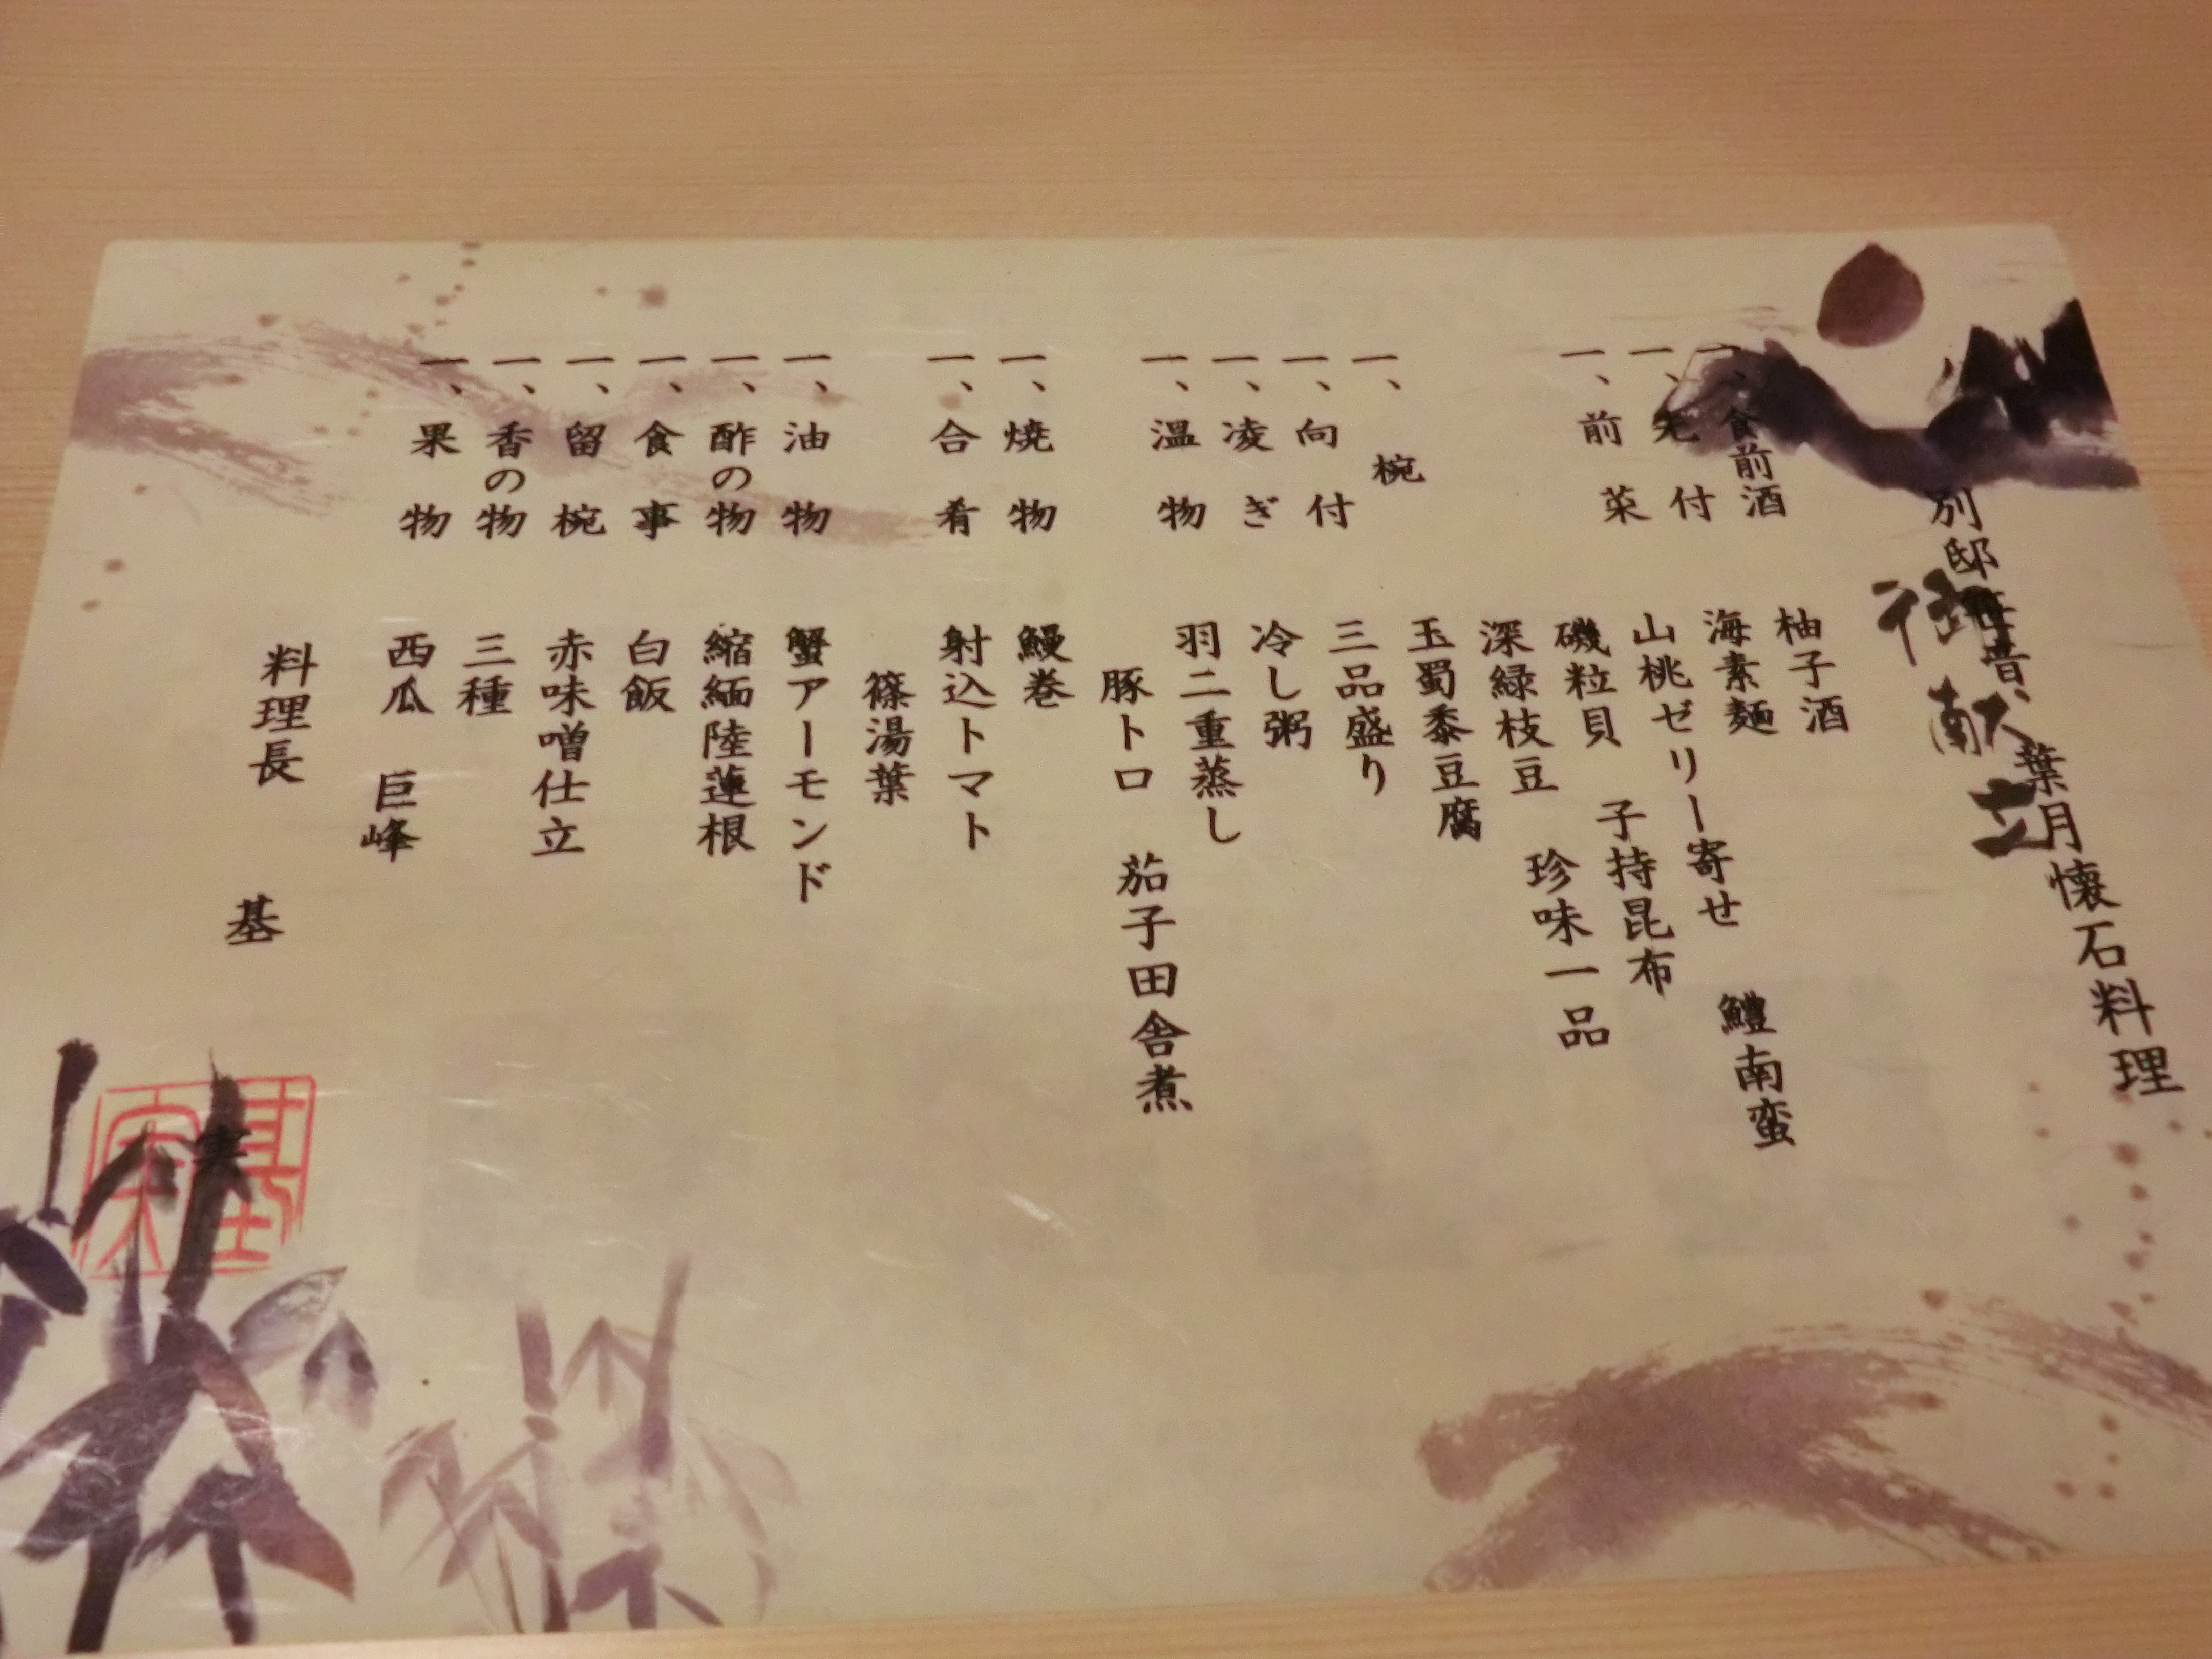 御献立
葉月懐石料理
一、食前酒 柚子酒
一、先付 海素麺
一、前菜 山桃ゼリー寄せ 鱧南蛮
磯粒貝 子持昆布
深緑枝豆 珍味一品
一、椀 玉蜀黍豆腐
一、向付 三品盛り
一、凌ぎ 冷し粥
一、温物 羽二重蒸し
豚トロ 茄子田舎煮
一、焼物 鰻巻
一、合肴 射込トマト
篠湯葉
一、油物 蟹アーモンド
一、酢の物 縮緬陸蓮根
一、食事 白飯
一、留椀 赤味噌仕立
一、香の物 三種
一、果物 西瓜 巨峰
料理長 基